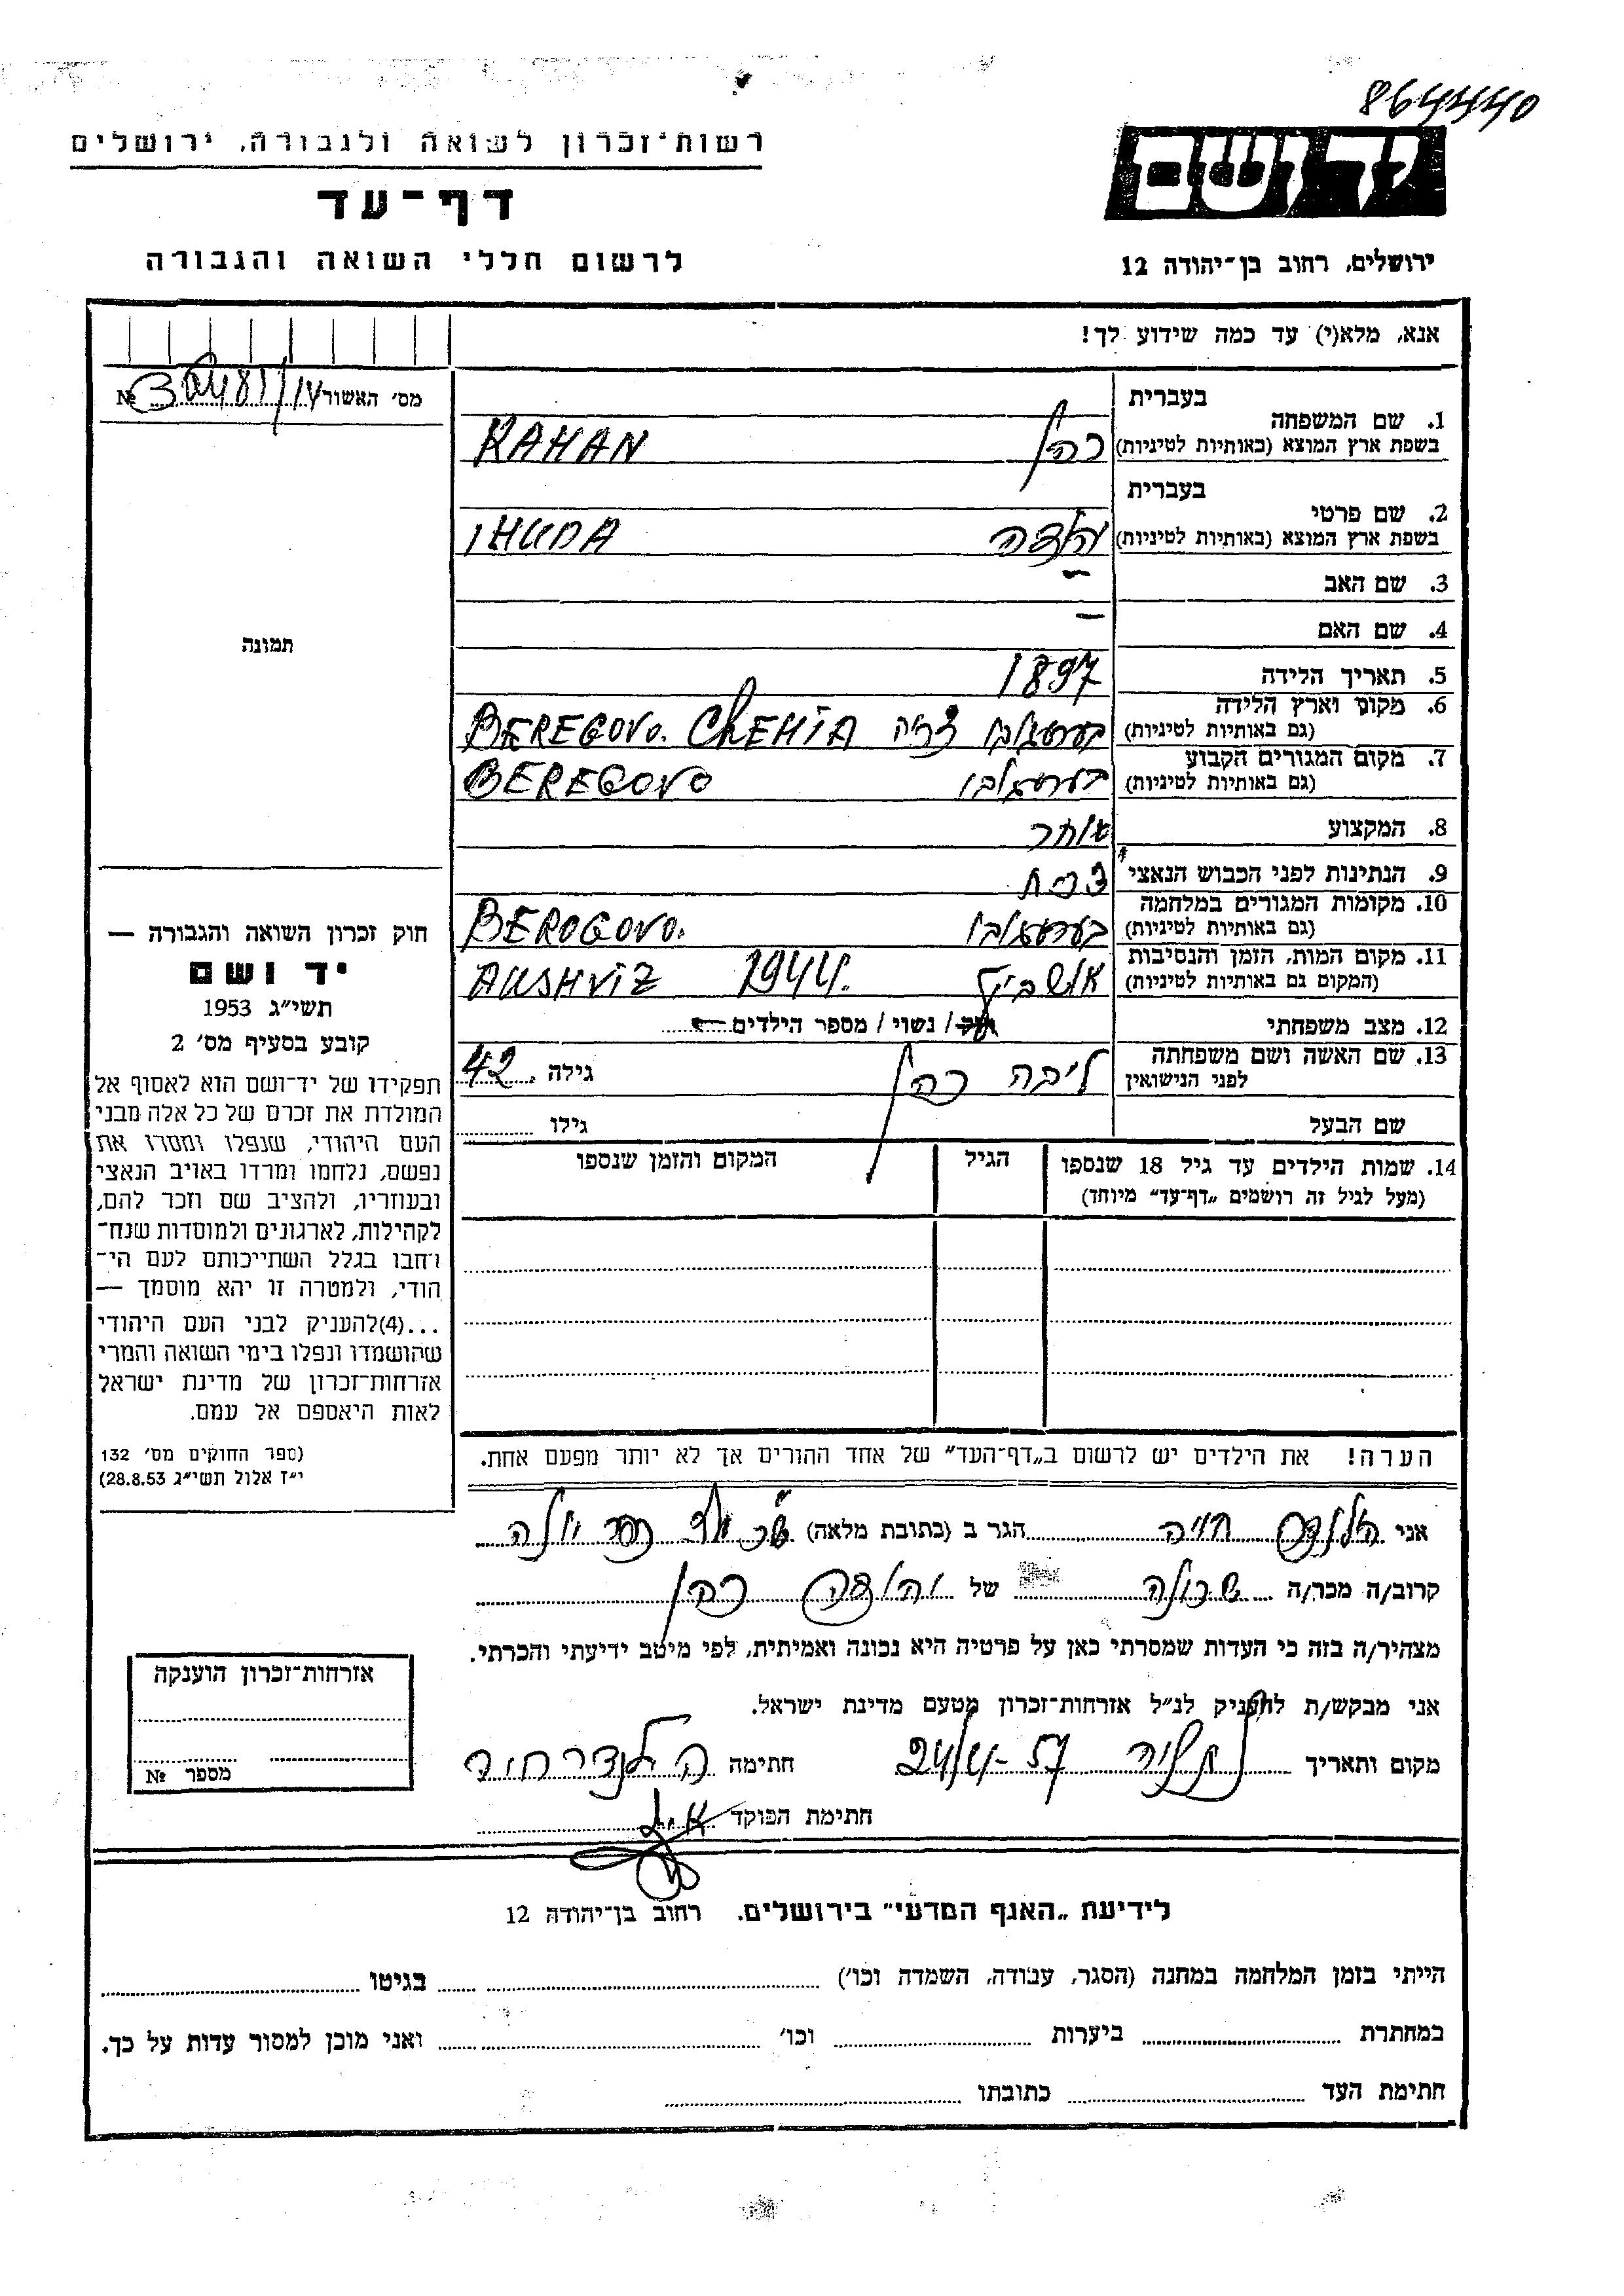 864440
רשות־זכרון לשואה ולגבורה, ירושלים
יד ושם
דף־עד
לרשום חללי השואה והגבורה
ירושלים, רחוב בן־יהודה 12
אנא, מלא(י) עד כמה שידוע לך!
מס׳ האשור №
בעברית
1. שם המשפחה
בשפת ארץ המוצא (באותיות לטיניות) כהן KAHAN
בעברית
2. שם פרטי
בשפת ארץ המוצא (באותיות לטיניות) יהודה IHUDA
3. שם האב –
4. שם האם –
תמונה
5. תאריך הלידה 1897
6. מקום וארץ הלידה
(גם באותיות לטיניות) BEREGOVO. CHEHIA
7. מקום המגורים הקבוע
(גם באותיות לטיניות) BEREGOVO
8. המקצוע סוחר
9. הנתינות לפני הכבוש הנאצי
10. מקומות המגורים במלחמה
(גם באותיות לטיניות) BEROGOVO.
11. מקום המות, הזמן והנסיבות
(המקום גם באותיות לטיניות) אושביץ 1944. AUSHVIZ
12. מצב משפחתי / נשוי / מספר הילדים –
13. שם האשה ושם משפחתה
לפני הנישואין ליבה כהן גילה 42
שם הבעל גילו
14. שמות הילדים עד גיל 18 שנספו הגיל המקום והזמן שנספו
(מעל לגיל זה רושמים „דף־עד״ מיוחד)
חוק זכרון השואה והגבורה —
יד ושם
תשי״ג 1953
קובע בסעיף מס׳ 2
תפקידו של יד־ושם הוא לאסוף אל
המולדת את זכרם של כל אלה מבני
העם היהודי, שנפלו ומסרו את
נפשם, נלחמו ומרדו באויב הנאצי
ובעוזריו, ולהציב שם וזכר להם,
לקהילות, לארגונים ולמוסדות שנח־
רבו בגלל השתייכותם לעם הי־
הודי, ולמטרה זו יהא מוסמך —
...(4)להעניק לבני העם היהודי
שהושמדו ונפלו בימי השואה והמרי
אזרחות־זכרון של מדינת ישראל
לאות היאספם אל עמם.
(ספר החוקים מס׳ 132
י״ז אלול תשי״ג 28.8.53)
הערה! את הילדים יש לרשום ב„דף־העד״ של אחד ההורים אך לא יותר מפעם אחת.
אני הלנדר חיה הגר ב (כתובת מלאה)
קרוב/ה מכר/ה שכנה של יהודה כהן
מצהיר/ה בזה כי העדות שמסרתי כאן על פרטיה היא נכונה ואמיתית, לפי מיטב ידיעתי והכרתי.
אני מבקש/ת להעניק לנ״ל אזרחות־זכרון מטעם מדינת ישראל.
מקום ותאריך נתניה 24/4-57 חתימה הלנדר חיה
חתימת הפוקד
אזרחות־זכרון הוענקה
מספר №
לידיעת „האגף המדעי״ בירושלים. רחוב בן־יהודה 12
הייתי בזמן המלחמה במחנה (הסגר, עבודה, השמדה וכו׳) בגיטו
במחתרת ביערות וכו׳ ואני מוכן למסור עדות על כך.
חתימת העד כתובתו